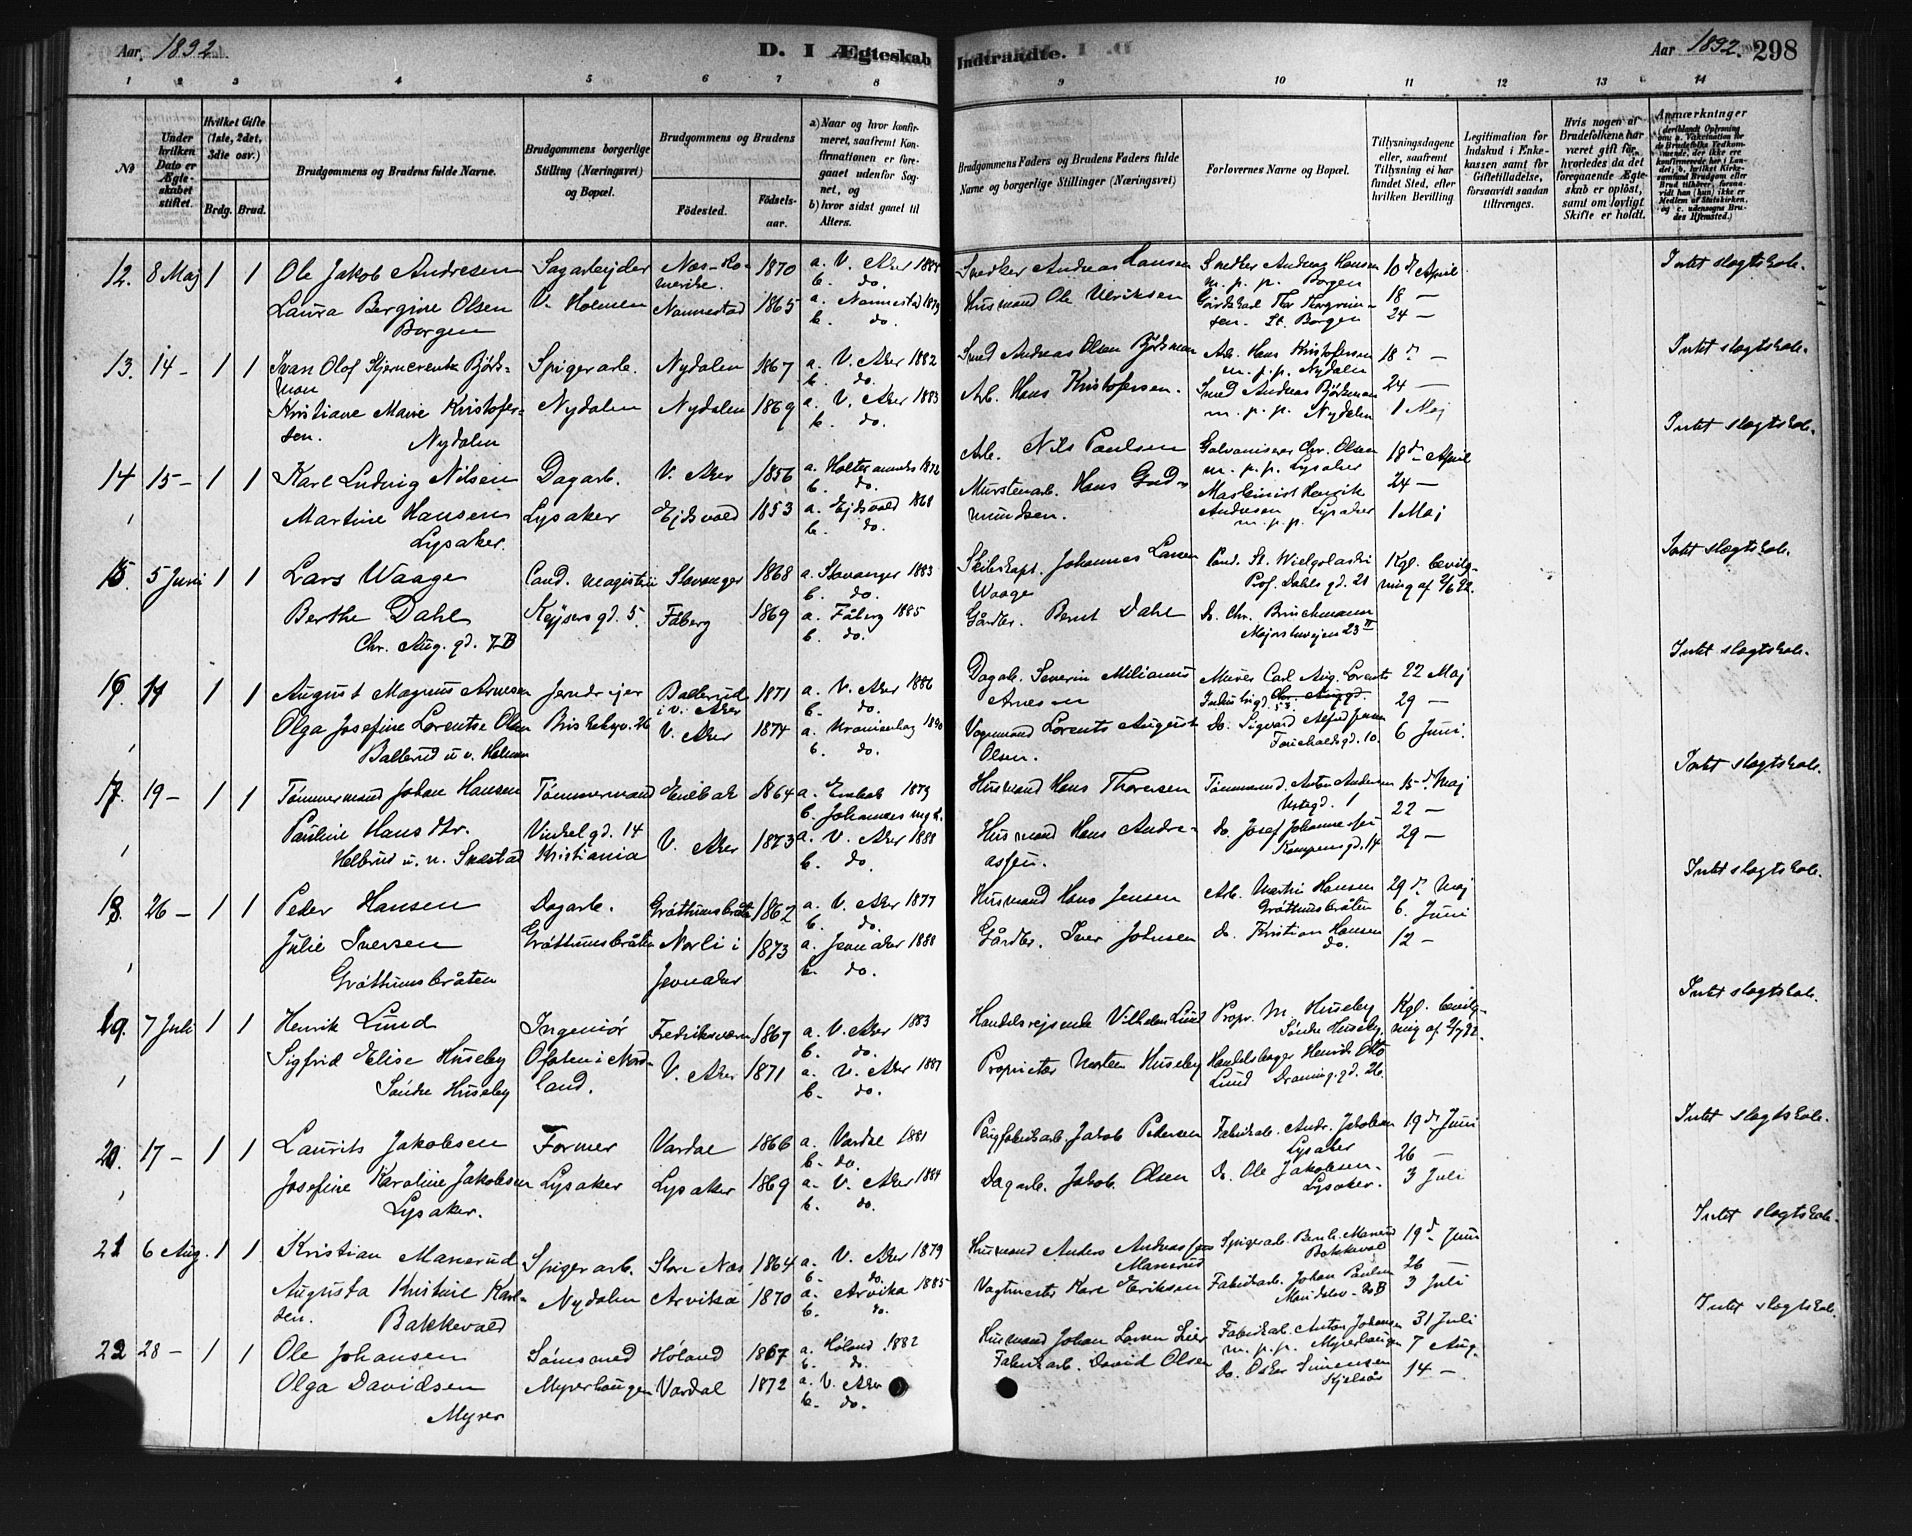 Aar 1892. D. I Ægteskab Indtraadte. Aar 1892. 298
1 2 3 4 5 6 7 8 9 10 11 12 13 14
№
Under hvilken Dato er Ægteskabet stiftet.
Hvilket Gifte (1ste, 2det, 3die osv.)
Brdg. Brud.
Brudgommens og Brudens fulde Navne.
Brudgommens borgerlige Stilling (Næringsvei) og Bopæl.
Brudgommens og Brudens
Fødested. Fødselsaar.
a) Naar og hvor konfirmeret, saafremt Konfirmationen er foregaaet udenfor Sognet, og
b) hvor sidst gaaet til Alters.
Brudgommens Faders og Brudens Faders fulde Navne og borgerlige Stillinger (Næringsvei)
Forlovernes Navne og Bopæl.
Tillysningsdagene eller, saafremt Tillysning ei har fundet Sted, efter hvilken Bevilling
Legitimation for Indskud i Enkekassen samt for Giftetilladelse, forsaavidt saadan tiltrænges.
Hvis nogen af Brudefolkene har været gift før, hvorledes da det foregaaende Ægteskab er opløst, samt om lovligt Skifte er holdt.
Anmærkninger
12. 8 Maj 1 1 Ole Jakob Andresen Sagarbejder Næs-Romerike. 1870 a. V. Aker b. do. Snedker Andreas Hansen Snedker Andreas Hansen m. p. p. Borgen 10de April Intet slægtskab.
Laura Bergine Olsen V. Holmen Nannestad 1865 a. Nannestad 1879 b. do. Husmand Ole Ulriksen St. Borgen 18 —
Borgen 24 —
13. 14 - 1 1 Ivan Olof Bjørkman Spigerarb. Nydalen 1867 a. V. Aker 1882 b. do. Smed Andreas Olsen Bjørkman Arb. Hans Kristofersen m. p. p. Nydalen 18de — Intet slægtskab.
Kristiane Marie Kristofersen. Nydalen Nydalen 1869 a. V. Aker 1883 b. do. Arb. Hans Kristofersen. Smed Andreas Bjørkman m. p. p. Nydalen 24 —
Nydalen 1 Maj
Intet slægtskab.
14 15 - 1 1 Karl Ludvig Nilsen Dagarb. V. Aker 1856 a. b. do. Arb. Nils Paulsen Galvaniserer Chr. Olsen m. p. p. Lysaker 18de April
Martine Hansen Lysaker Ejdsvold 1853 a. Ejdsvold 1868 b. do. Murstenarb. Hans Gudmundsen. Maskinist Henrik Andersen m. p. p. Lysaker 24 —
Lysaker. 1 Maj
15. 5 Juni 1 1 Lars Waage Cand. magisterii Stavanger 1868 a. Stavanger 1883 b. do. Skibskapt. Johannes Larsen Waage Cand. St. Wielgolaski Prof. Dahls gd. 21 Kgl. bevilgning af 2/6 92. Intet slægtskab.
Berthe Dahl Keysers gd. 5. Fåberg 1869 a. Fåberg 1885 b. do. Gårdbr. Bernt Dahl Do. Chr. Bruchmann Majorstuvejen 23 II
Chr. Aug. gd. 7B
16. 19 1 1 August Magnus Arnesen Jerndrejer Ballerud i V. Aker 1871 a. V. Aker 1886 b. do. Dagarb. Severin Milianus Arnesen Murer Carl Aug. Lorentz 22 Maj Intet slægtskab.
Olga Josefine Lorentse Olsen Briskebyv. 26 V. Aker 1874 a. Uranienborg 1890 b. do. Vognmand Lorents August Olsen. Do. Sigvard Alfred Jensen 29 —
Ballerud u. v. Holmen 6 Juni.
17. 19 — 1 1 Tømmermand Johan Hansen Tømmermand Enebak 1864 a. Enebak 1879 b. Johannes mgh. Husmand Hans Thoresen Tømmermd. Anton Andersen 1 15de Maj Intet slægtskab.
Pauline Hansdtr. Vinkelgd. 14 V. Aker 1873 a. V. Aker 1888 b. do. Husmand Hans Andreassen. Do. Josef Johannesen Kampensgd. 14 22 —
Kristiania 29 —
18. 26 — 1 1 Peder Hansen Dagarb. Grøttumsbråten 1862 a. V. Aker 1877 b. do. Husmand Hans Jensen Arb. Martin Hansen Grøttumsbråten 29de Maj Intet slægtskab.
Julie Iversen Grøttumsbråten Norli i Jevnaker 1873 a. Jevnaker 1888 b. do. Gårdbr. Iver Johnsen Do. Kristian Hansen do. 6. Juni
Grøttumsbråten 12 —
19. 7 Juli 1 1 Henrik Lund Ingeniør Fredriksværn 1867 a. V. Aker 1883 b. do. Handelsrejsende Vilhelm Lund Propr. M. Huseby Søndre Huseby. Kgl. bevilgning af 2/7 92. Intet slægtskab.
Sigfrid Elise Huseby Ofoten i Nordland. V. Aker 1871 a. V. Aker 1887 b. do. Proprietær Morten Huseby Handelsborger Henrik Otto Lund 26.
Søndre Huseby
20. 17 — 1 1 Laurits Jakobsen Former Vardal 1866 a. Vardal 1881 b. do. Jakob Pedersen Fabrikarb. Andr. Jakobsen Lysaker 19de Juni Intet slægtskab.
Josefine Karoline Jakobsen Lysaker Lysaker 1869 a. V. Aker 1884 b. do. Dagarb. Jakob Olsen Do. Ole Jakobsen. Lysaker. 26 —
Lysaker. 3 Juli
21 6 Aug. 1 1 Kristian Manerud Spigerarb. Store Næs 1864 a. V. Aker 1879 b. do. Husmand Anders Andreassen Manerud Spigerarb. Bernh. Manerud Bakkevold 19de Juni Intet slægtskab.
Augusta Kristine Karlsen. Nydalen Arvika 1870 a. Arvika 1885 b. do. Vagtmester Karl Eriksen Fabrikarb. Johan Paulsen 26 —
Bakkevold 3 Juli
22 28 — 1 1 Ole Johansen Sømsmed Høland 1867 a. Høland 1882 b. do. Husmand Johan Larsen Lier Fabrikarb. Anton Johansen m. p. p. Myrerhaugen 31 Juli Intet slægtskab
Olga Davidsen Myrerhaugen Vardal 1872 a. V. Aker b. do. Fabrikarb. David Olsen Do. Oskar Simensen Kjelsås 7 Aug.
Myrer 14 —